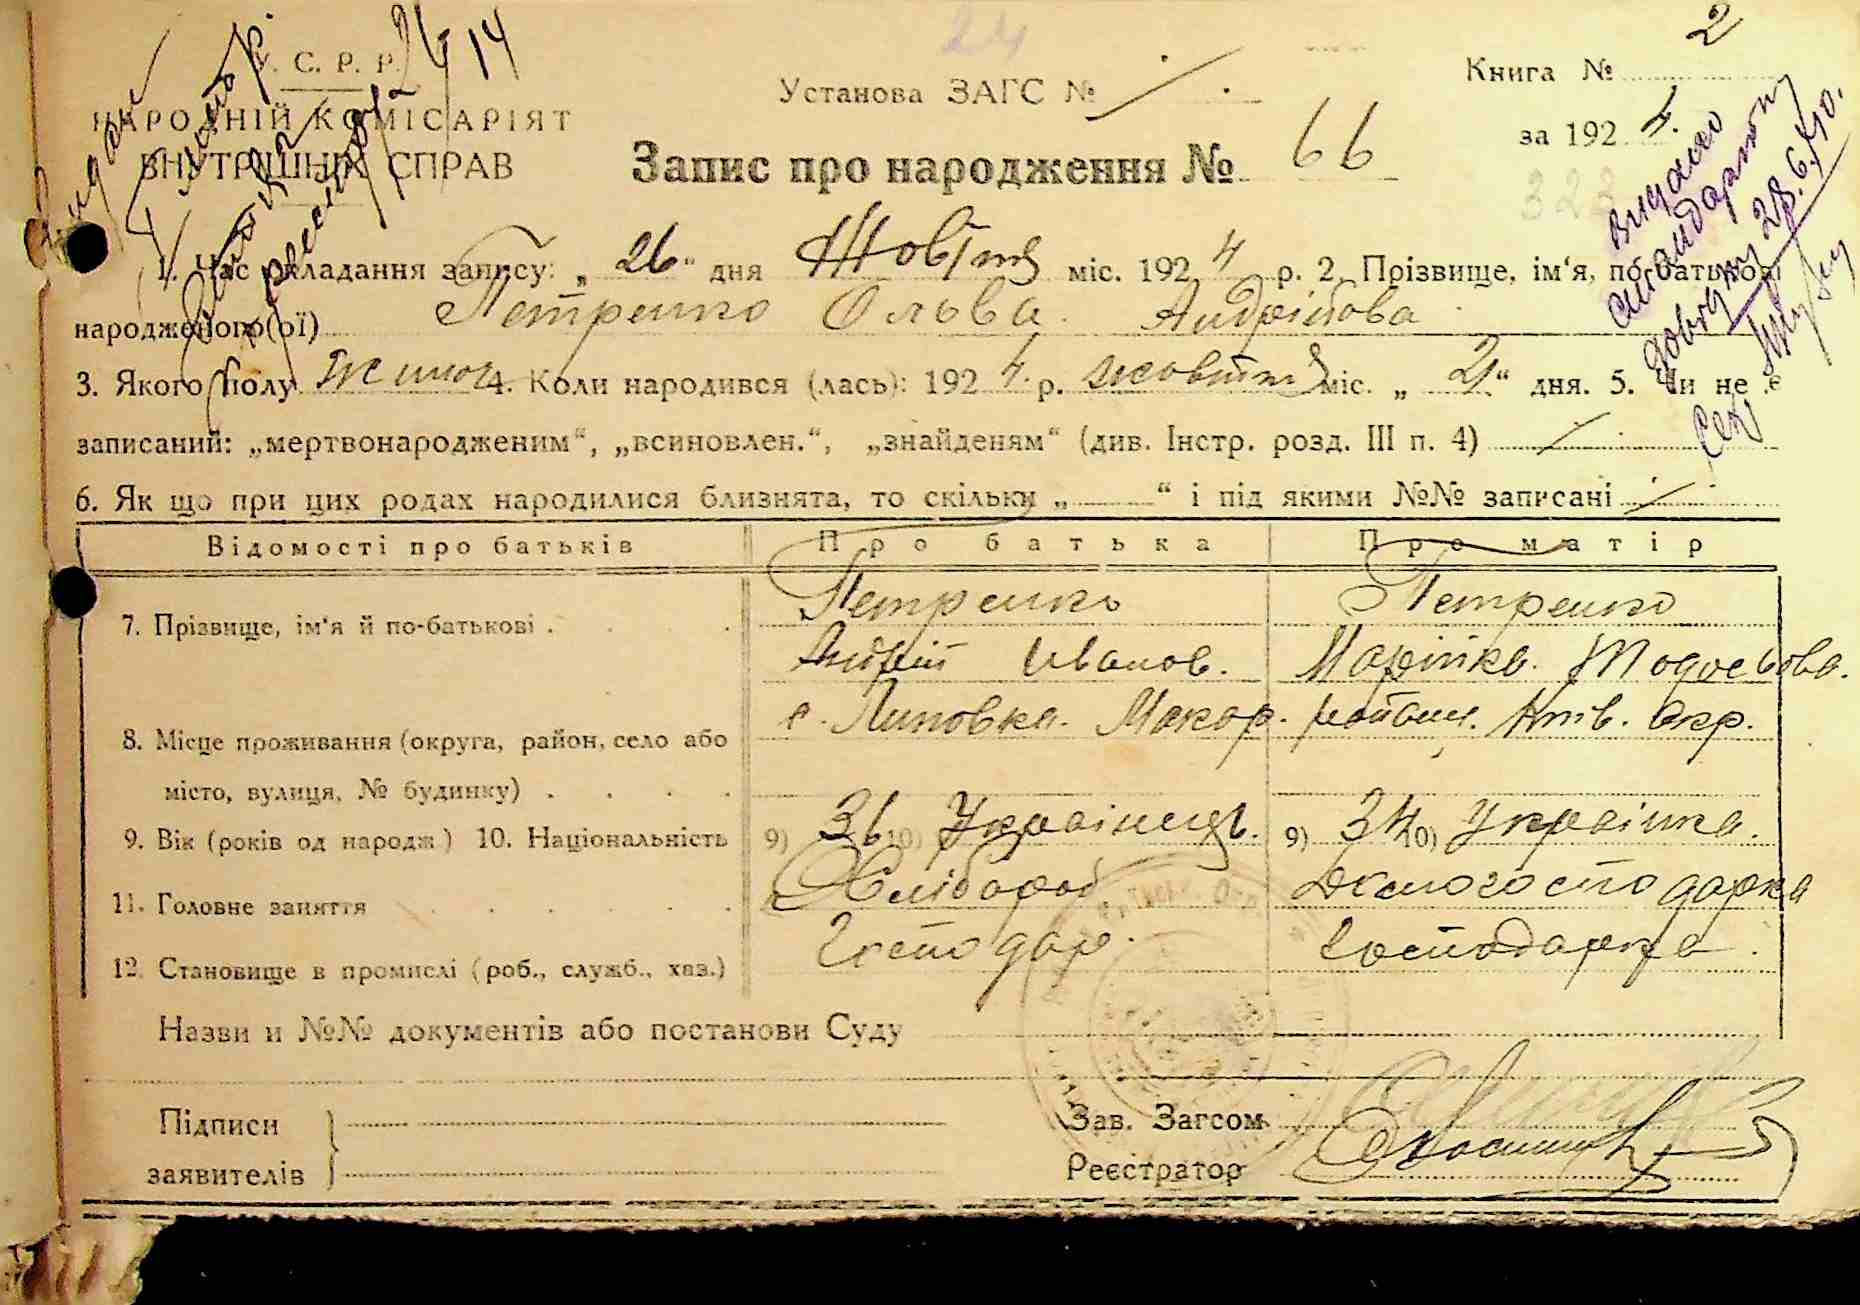 24
У. С. Р. Р.
НАРОДНІЙ КОМІСАРІЯТ
ВНУТРІШНІХ СПРАВ
Установа ЗАГС №
Книга № 2
за 1924.
Запис про народження № 66
323
1. Час складання запису: „26“ дня Жовтня міс. 1924 р. 2. Прізвище, ім‘я, по батькові
народженого(ої) Петренко Ольга Андріівова
3. Якого полу жіноч 4. Коли народився (лась): 1924. р. жовтня міс. „21“ дня. 5. Чи не є
записаний: „мертвонародженим“, „всиновлен.“, „знайденям“ (див. Інстр. розд. III п. 4)
6. Як що при цих родах народилися близнята, то скільки „ “ і під якими №№ записані
Відомості про батьків Про батька Про матір
7. Прізвище, ім‘я й по-батькові . Петренко Петренко
Андрій Іванов. Марійка Тодосьова.
8. Місце проживання (округа, район, село або с. Липовка. Макар. району. Київ. Окр.
місто, вулиця, № будинку)
9. Вік (років од народж) 10. Національність 9) 36 10) Українець. 9) 34 10) Українка.
11. Головне заняття Хлібороб Домогосподарка
12. Становище в промислі (роб., служб., хаз.) Господар. Господарка.
Назви и №№ документів або постанови Суду
Підписи
заявителів
Зав. Загсом
Реєстратор
видано
28.6.40.